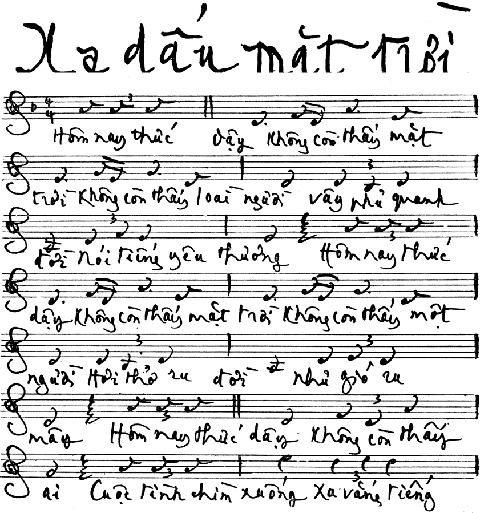 Xa dấu mặt trời
Hôm nay thức dậy không còn thấy mặt
trời không còn thấy loài người vây phủ quanh
đời nói tiếng yêu thương Hôm nay thức
dậy không còn thấy mặt trời không còn thấy một
người Hơi thở ru đời như gió ru
mây Hôm nay thức dậy không còn thấy
ai Cuộc tình chìm xuống xa vắng tiếng